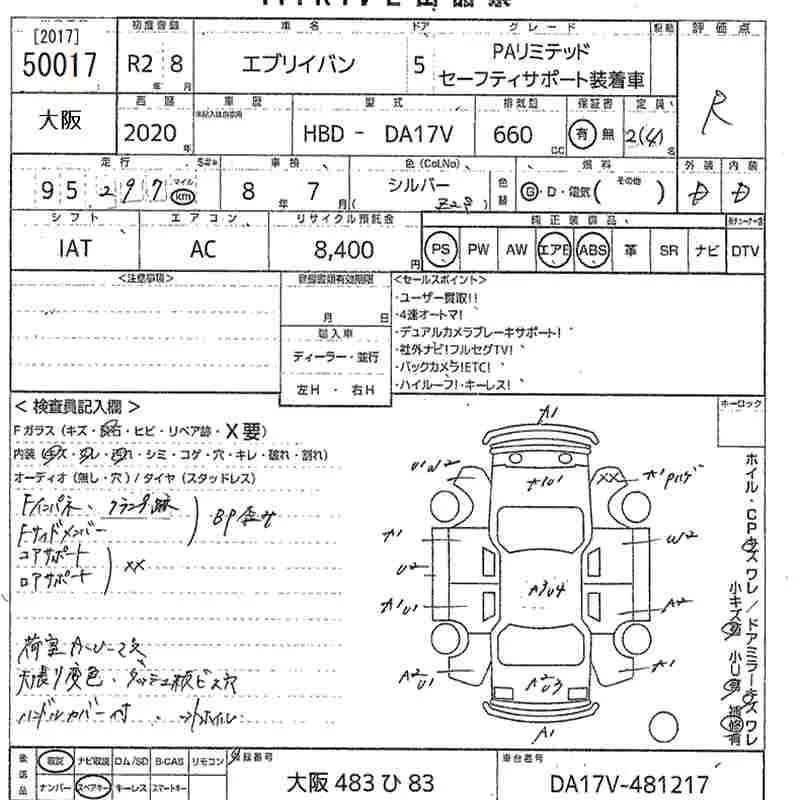 [2017]
50017
初度登録
R2 8
年 月
車名
エブリイバン
ドア
5
グレード
PAリミテッド
セーフティサポート装着車
駆動
評価点
R
大阪
西暦
2020
年
車歴
型式
HBD - DA17V
排気量
660
CC
保証書
有 無
定員
2(4)
名
走行
95,297
マイル
km
車検
8年 7月
色(Col.No)
シルバー
Z2S
色替
燃料
G・D・電気(その他 )
外装
D
内装
D
シフト
IAT
エアコン
AC
リサイクル預託金
8,400
円
純正装備品
PS PW AW エアB ABS 革 SR ナビ
DTV
<注意事項>
登録書類有効期限
月 日
輸入車
ディーラー・並行
左H ・ 右H
<セールスポイント>
・ユーザー買取!!
・4速オートマ!
・デュアルカメラブレーキサポート!
・社外ナビ!フルセグTV!
・バックカメラ!ETC!
・ハイルーフ!・キーレス!
<検査員記入欄>
Fガラス(キズ・飛石・ヒビ・リペア跡・X要)
内装(キズ・スレ・汚れ・シミ・コゲ・穴・キレ・破れ・割れ)
オーディオ(無し・穴)/タイヤ(スタッドレス)
Fインパネ、クランプ跡
Fサイドメンバー
BP歪み
コアサポート
ロアサポート
XX
荷室A・U・ス
天張り変色・ダッシュ板ビス穴
ハンドルカバー付
ホーロック
A1
U1W2
A1
XX
A1
A1
W2
U2
A3U4
A1U1
A2
A2U1
A2U3
A1
A1
ホイル・CPキズワレ/ドアミラーキズワレ
小キズ 小U 補修有
後送品
取説 ナビ取説 ロム/SD B-CAS リモコン
ナンバー スペアキー キーレス スマートキー
登録番号
大阪 483 ひ 83
車台番号
DA17V-481217